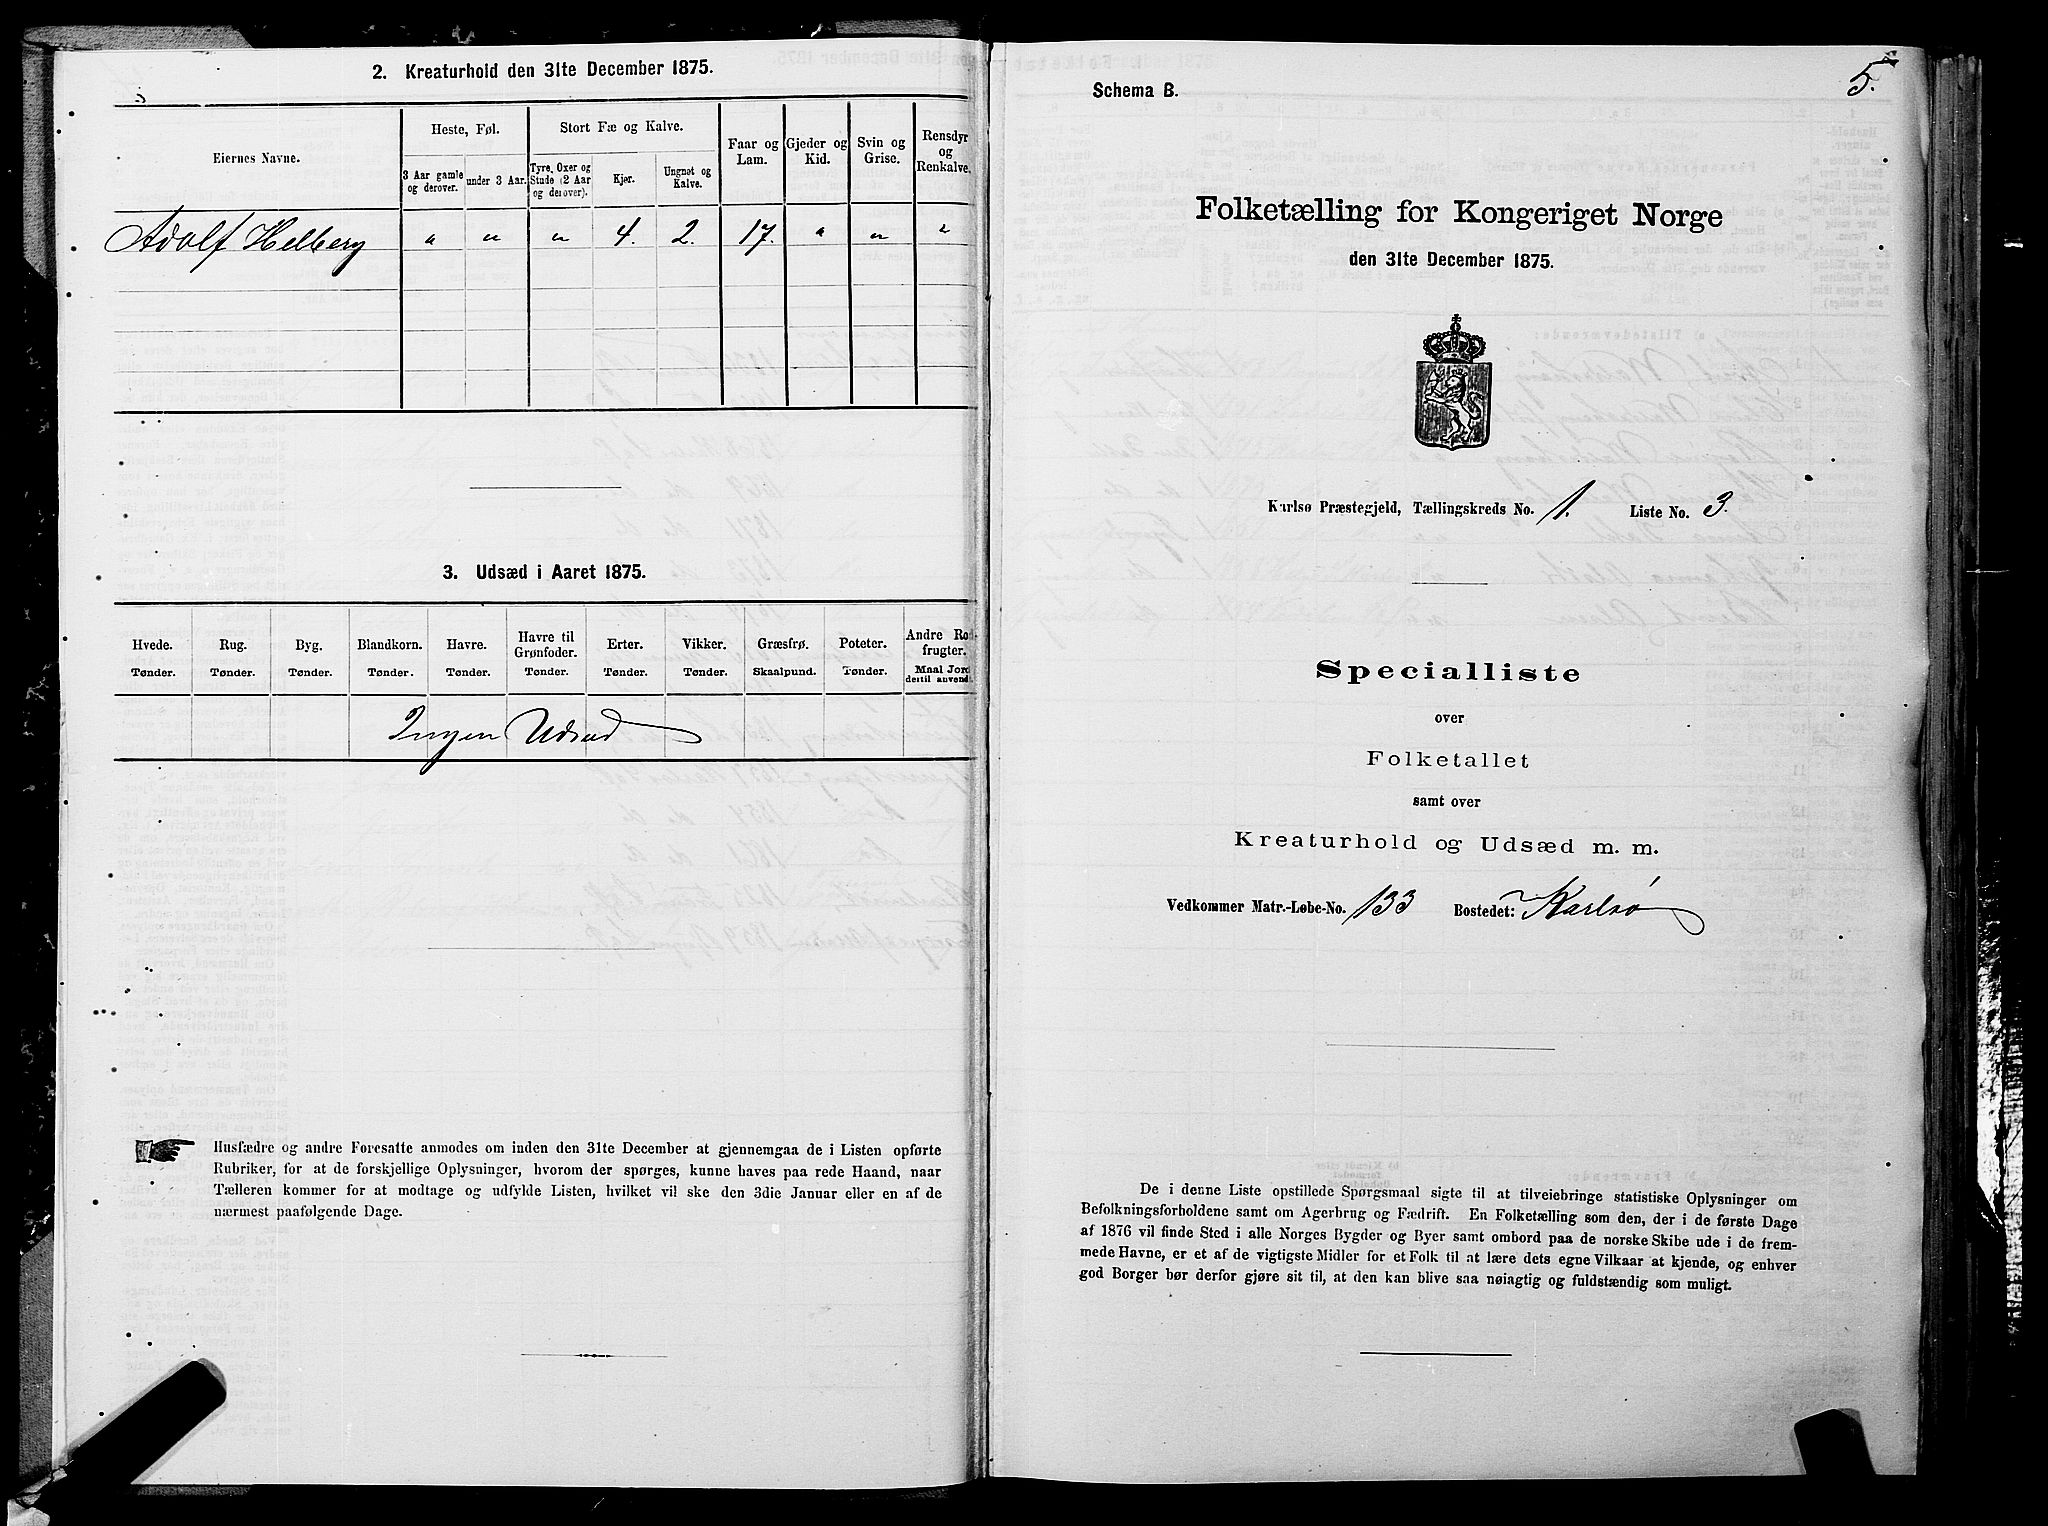 2. Kreaturhold den 31te December 1875.
Eiernes Navne.
Heste, Føl.
Stort Fæ og Kalve.
Faar og Lam.
Gjeder og Kid.
Svin og Grise.
Rensdyr og Renkalve.
3 Aar gamle og derover.
under 3 Aar.
Tyre, Oxer og Stude (2 Aar og derover).
Kjør.
Ungnøt og Kalve.
Adolf Helberg " " " 4. 2. 17. " " "
3. Udsæd i Aaret 1875.
Hvede. Tønder.
Rug. Tønder.
Byg. Tønder.
Blandkorn. Tønder.
Havre. Tønder.
Havre til Grønfoder. Tønder.
Erter. Tønder.
Vikker. Tønder.
Græsfrø. Skaalpund.
Poteter. Tønder.
Andre Rod-frugter. Maal Jord dertil anvendt.
Ingen Udsæd
Husfædre og andre Foresatte anmodes om inden den 31te December at gjennemgaa de i Listen opførte
Rubriker, for at de forskjellige Oplysninger, hvorom der spørges, kunne haves paa rede Haand, naar
Tælleren kommer for at modtage og udfylde Listen, hvilket vil ske den 3die Januar eller en af de
nærmest paafølgende Dage.
5.
Schema B.
Folketælling for Kongeriget Norge
den 31te December 1875.
Karlsø Præstegjeld, Tællingskreds No. 1. Liste No. 3.
Specialliste
over
Folketallet
samt over
Kreaturhold og Udsæd m. m.
Vedkommer Matr.-Løbe-No. 133 Bostedet: Karlsø
De i denne Liste opstillede Spørgsmaal sigte til at tilveiebringe statistiske Oplysninger om
Befolkningsforholdene samt om Agerbrug og Fædrift. En Folketælling som den, der i de første Dage
af 1876 vil finde Sted i alle Norges Bygder og Byer samt ombord paa de norske Skibe ude i de frem-
mede Havne, er et af de vigtigste Midler for et Folk til at lære dets egne Vilkaar at kjende, og enhver
god Borger bør derfor gjøre sit til, at den kan blive saa nøiagtig og fuldstændig som muligt.